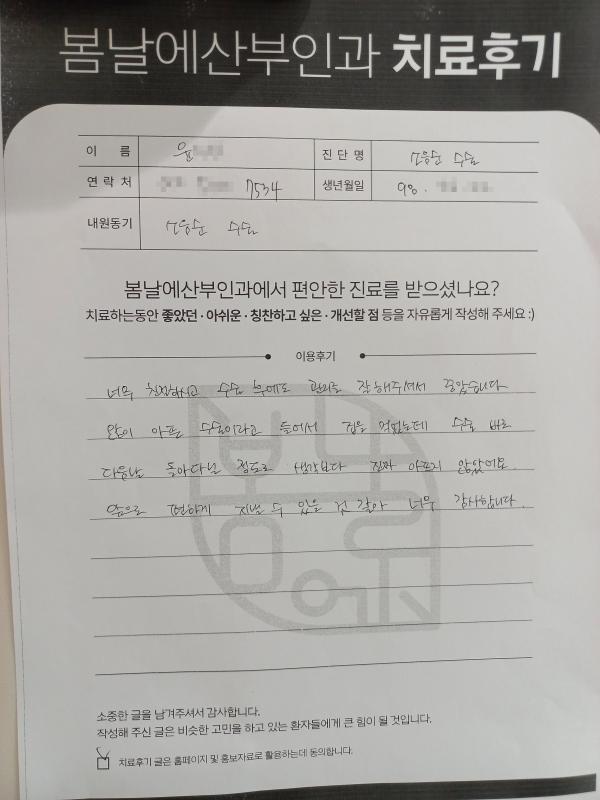 봄날에산부인과 치료후기
이 름 윤 진단명 소음순 수술
연락처 7534 생년월일 98.
내원동기 소음순 수술
봄날에산부인과에서 편안한 진료를 받으셨나요?
치료하는동안 좋았던 · 아쉬운 · 칭찬하고 싶은 · 개선할 점 등을 자유롭게 작성해 주세요 :)
이용후기
너무 친절하시고 수술 후에도 관리로 잘해주셔서 좋았습니다
많이 아픈 수술이라고 들어서 겁을 먹었는데 수술 바로
다음날 돌아다닐 정도로 생각보다 진짜 아프지 않았어요.
앞으로 편하게 지낼 수 있을 것 같아 너무 감사합니다.
봄날에
소중한 글을 남겨주셔서 감사합니다.
작성해 주신 글은 비슷한 고민을 하고 있는 환자들에게 큰 힘이 될 것입니다.
치료후기 글은 홈페이지 및 홍보자료로 활용하는데 동의합니다.